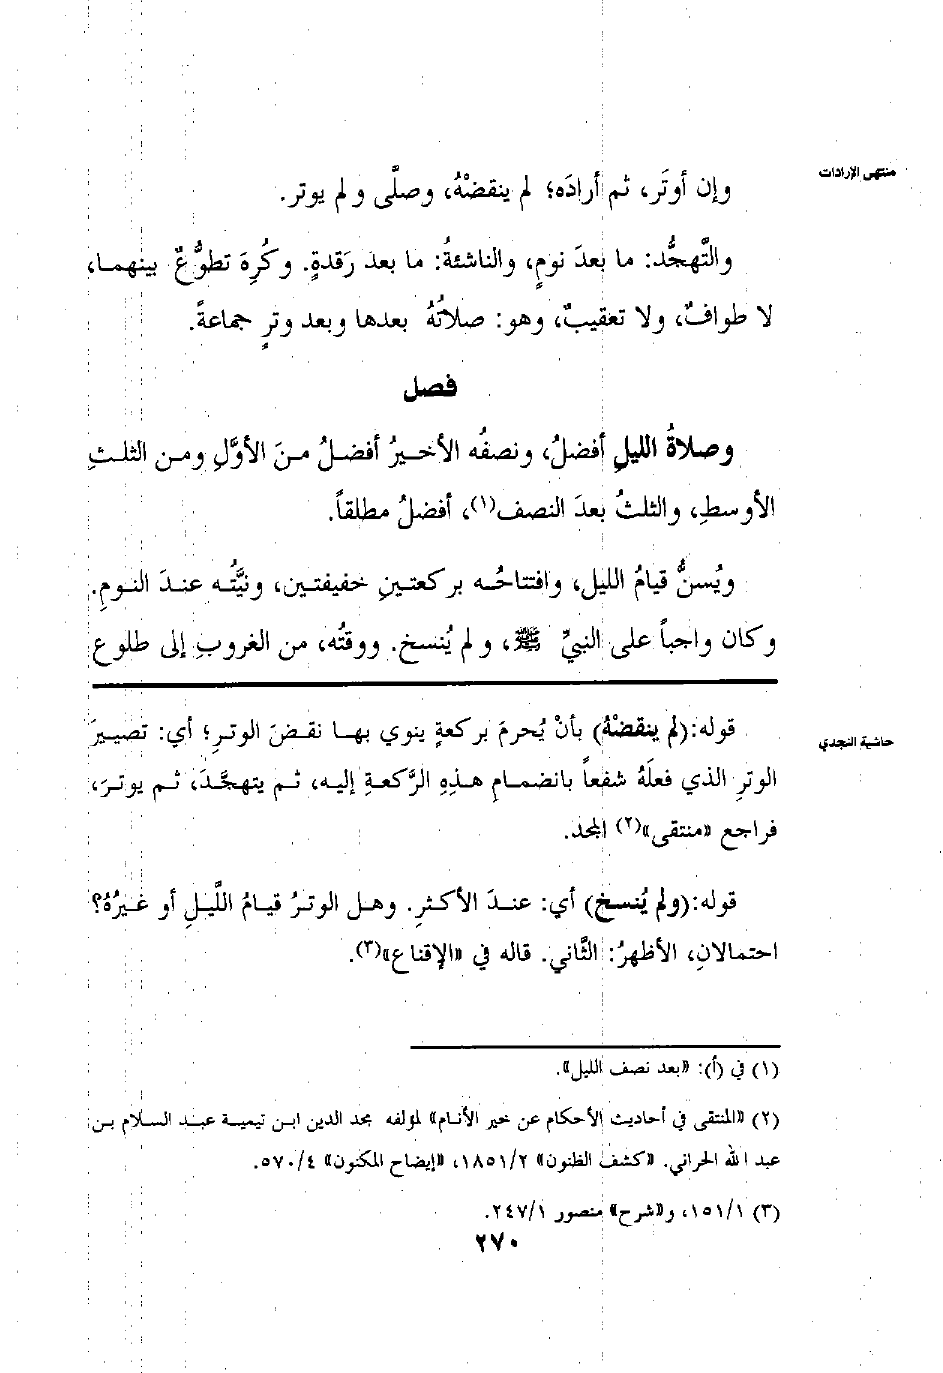 منتهى الإرادات
وإن أوتَر، ثم أرادَه؛ لم ينقضْهُ، وصلَّى ولم يوتر.
والتَّهجُّد: ما بعدَ نومٍ، والناشئةُ: ما بعد رَقدةٍ. وكُرِهَ تطوُّعٌ بينهما،
لا طوافٌ، ولا تعقيبٌ، وهو: صلاتُهُ بعدها وبعد وترٍ جماعةً.
فصل
وصلاةُ الليلِ أفضلُ، ونصفُه الأخيرُ أفضلُ منَ الأوَّلِ ومن الثلثِ
الأوسطِ، والثلثُ بعدَ النصف(١)، أفضلُ مطلقاً.
ويُسنُّ قيامُ الليل، وافتتاحُه بركعتينِ خفيفتين، ونيَّتُه عندَ النومِ.
وكان واجباً على النبيِّ ﷺ، ولم يُنسخ. ووقتُه، من الغروبِ إلى طلوع
حاشية النجدي
قوله:(لم ينقضْهُ) بأنْ يُحرمَ بركعةٍ ينوي بها نقضَ الوترِ؛ أي: تصييرَ
الوترِ الذي فعلَهُ شفعاً بانضمامِ هذِهِ الرَّكعةِ إليه، ثم يتهجَّدَ، ثم يوترَ،
فراجع «منتقى»(٢) المجد.
قوله:(ولم يُنسخ) أي: عندَ الأكثرِ. وهل الوترُ قيامُ اللَّيلِ أو غيرُهُ؟
احتمالانِ، الأظهرُ: الثَّاني. قاله في «الإقناع»(٣).
(١) في (أ): «بعد نصف الليل».
(٢) «المنتقى في أحاديث الأحكام عن خير الأنام» لمؤلفه مجد الدين ابن تيمية عبد السلام بن
عبد الله الحراني. «كشف الظنون» ١٨٥١/٢، «إيضاح المكنون» ٥٧٠/٤.
(٣) ١٥١/١، و«شرح» منصور ٢٤٧/١.
٢٧٠